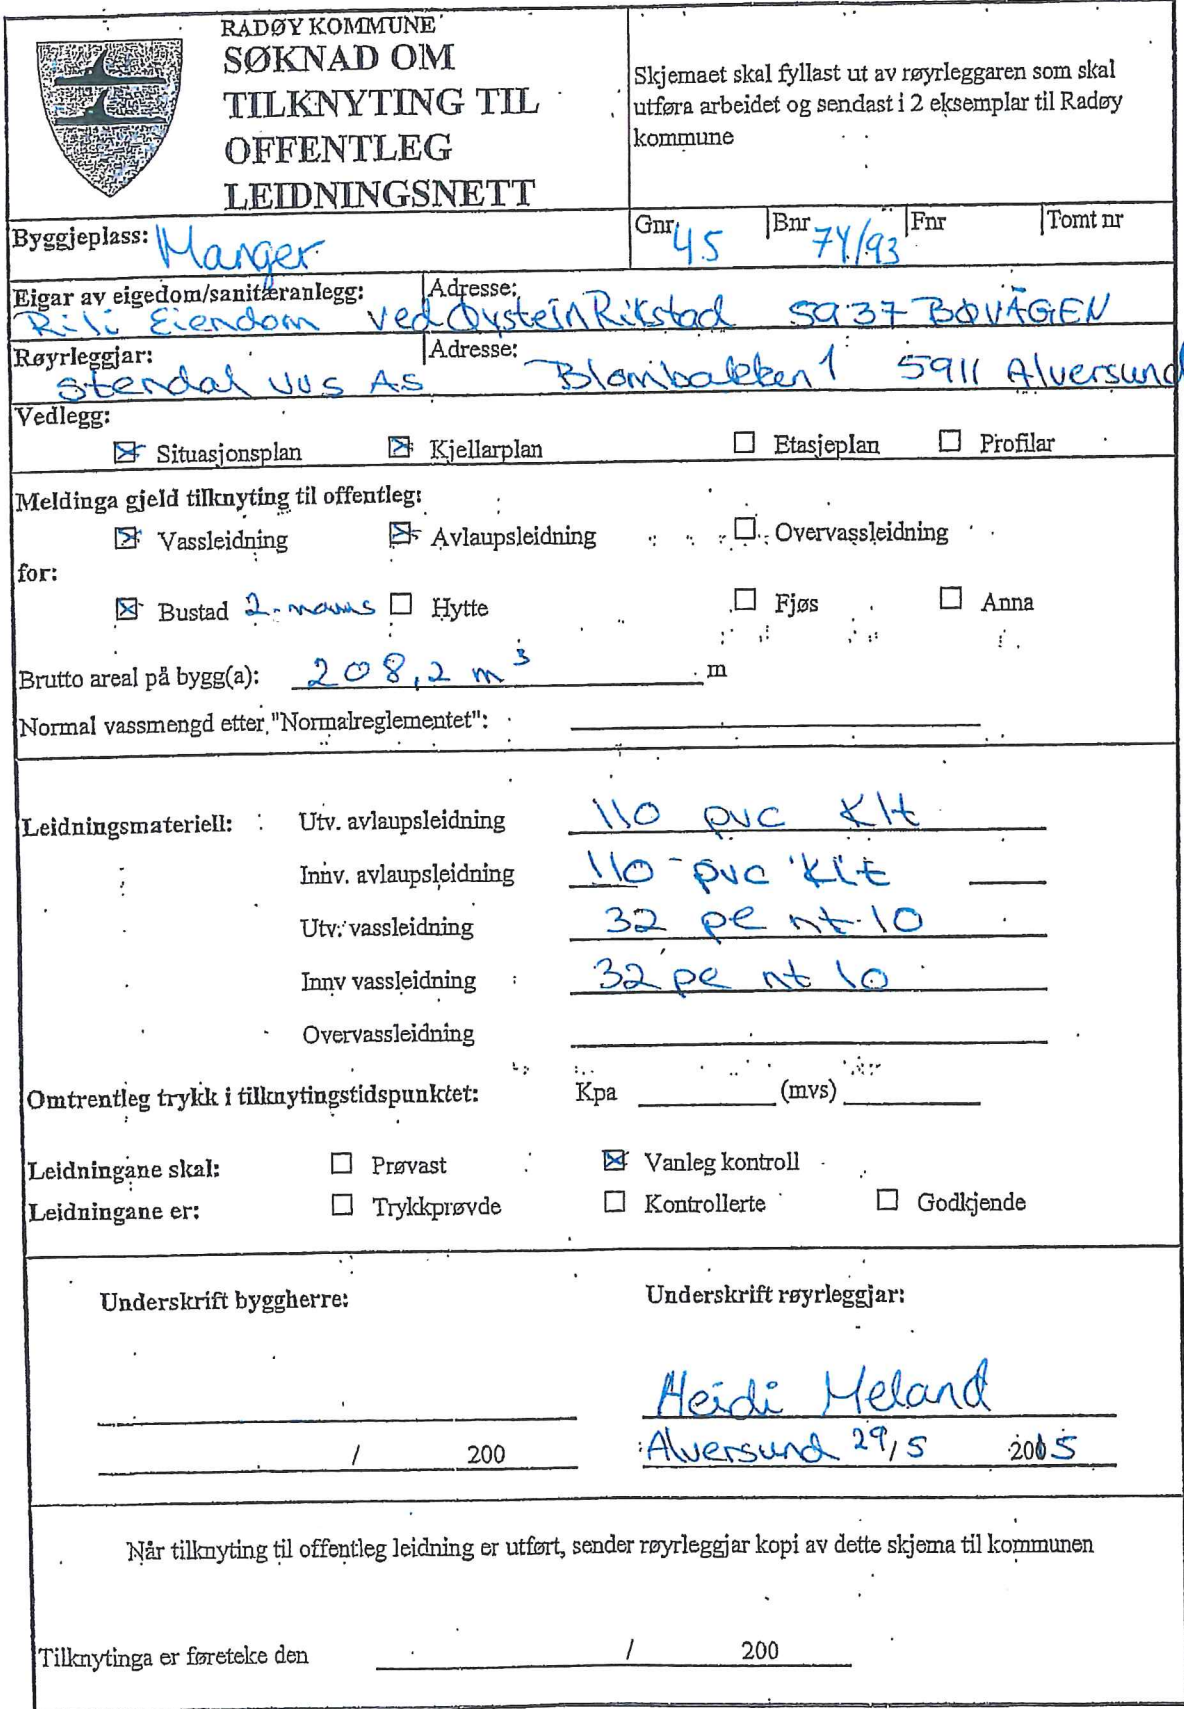 RADØY KOMMUNE
SØKNAD OM
TILKNYTING TIL
OFFENTLEG
LEIDNINGSNETT
Skjemaet skal fyllast ut av røyrleggaren som skal
utføra arbeidet og sendast i 2 eksemplar til Radøy
kommune
Byggjeplass: Manger
Gnr 45 Bnr 74/93 Fnr Tomt nr
Eigar av eigedom/sanitæranlegg: Adresse:
Rili Eiendom ved Øystein Rikstad 5937 BØVÅGEN
Røyrleggjar: Adresse:
Stendal VVS AS Blombakken 1 5911 Alversund
Vedlegg:
☒ Situasjonsplan ☒ Kjellarplan ☐ Etasjeplan ☐ Profilar
Meldinga gjeld tilknyting til offentleg:
☒ Vassleidning ☒ Avlaupsleidning ☐ Overvassleidning
for:
☒ Bustad 2-manns ☐ Hytte ☐ Fjøs ☐ Anna
Brutto areal på bygg(a): 208,2 m³ m
Normal vassmengd etter "Normalreglementet":
Leidningsmateriell: Utv. avlaupsleidning 110 pvc Klt
Innv. avlaupsleidning 110 pvc Klt
Utv. vassleidning 32 pe nt 10
Innv vassleidning 32 pe nt 10
Overvassleidning
Omtrentleg trykk i tilknytingstidspunktet: Kpa (mvs)
Leidningane skal: ☐ Prøvast ☒ Vanleg kontroll
Leidningane er: ☐ Trykkprøvde ☐ Kontrollerte ☐ Godkjende
Underskrift byggherre: Underskrift røyrleggjar:
Heidi Meland
/ 200 Alversund 29/5 2015
Når tilknyting til offentleg leidning er utført, sender røyrleggjar kopi av dette skjema til kommunen
Tilknytinga er føreteke den / 200